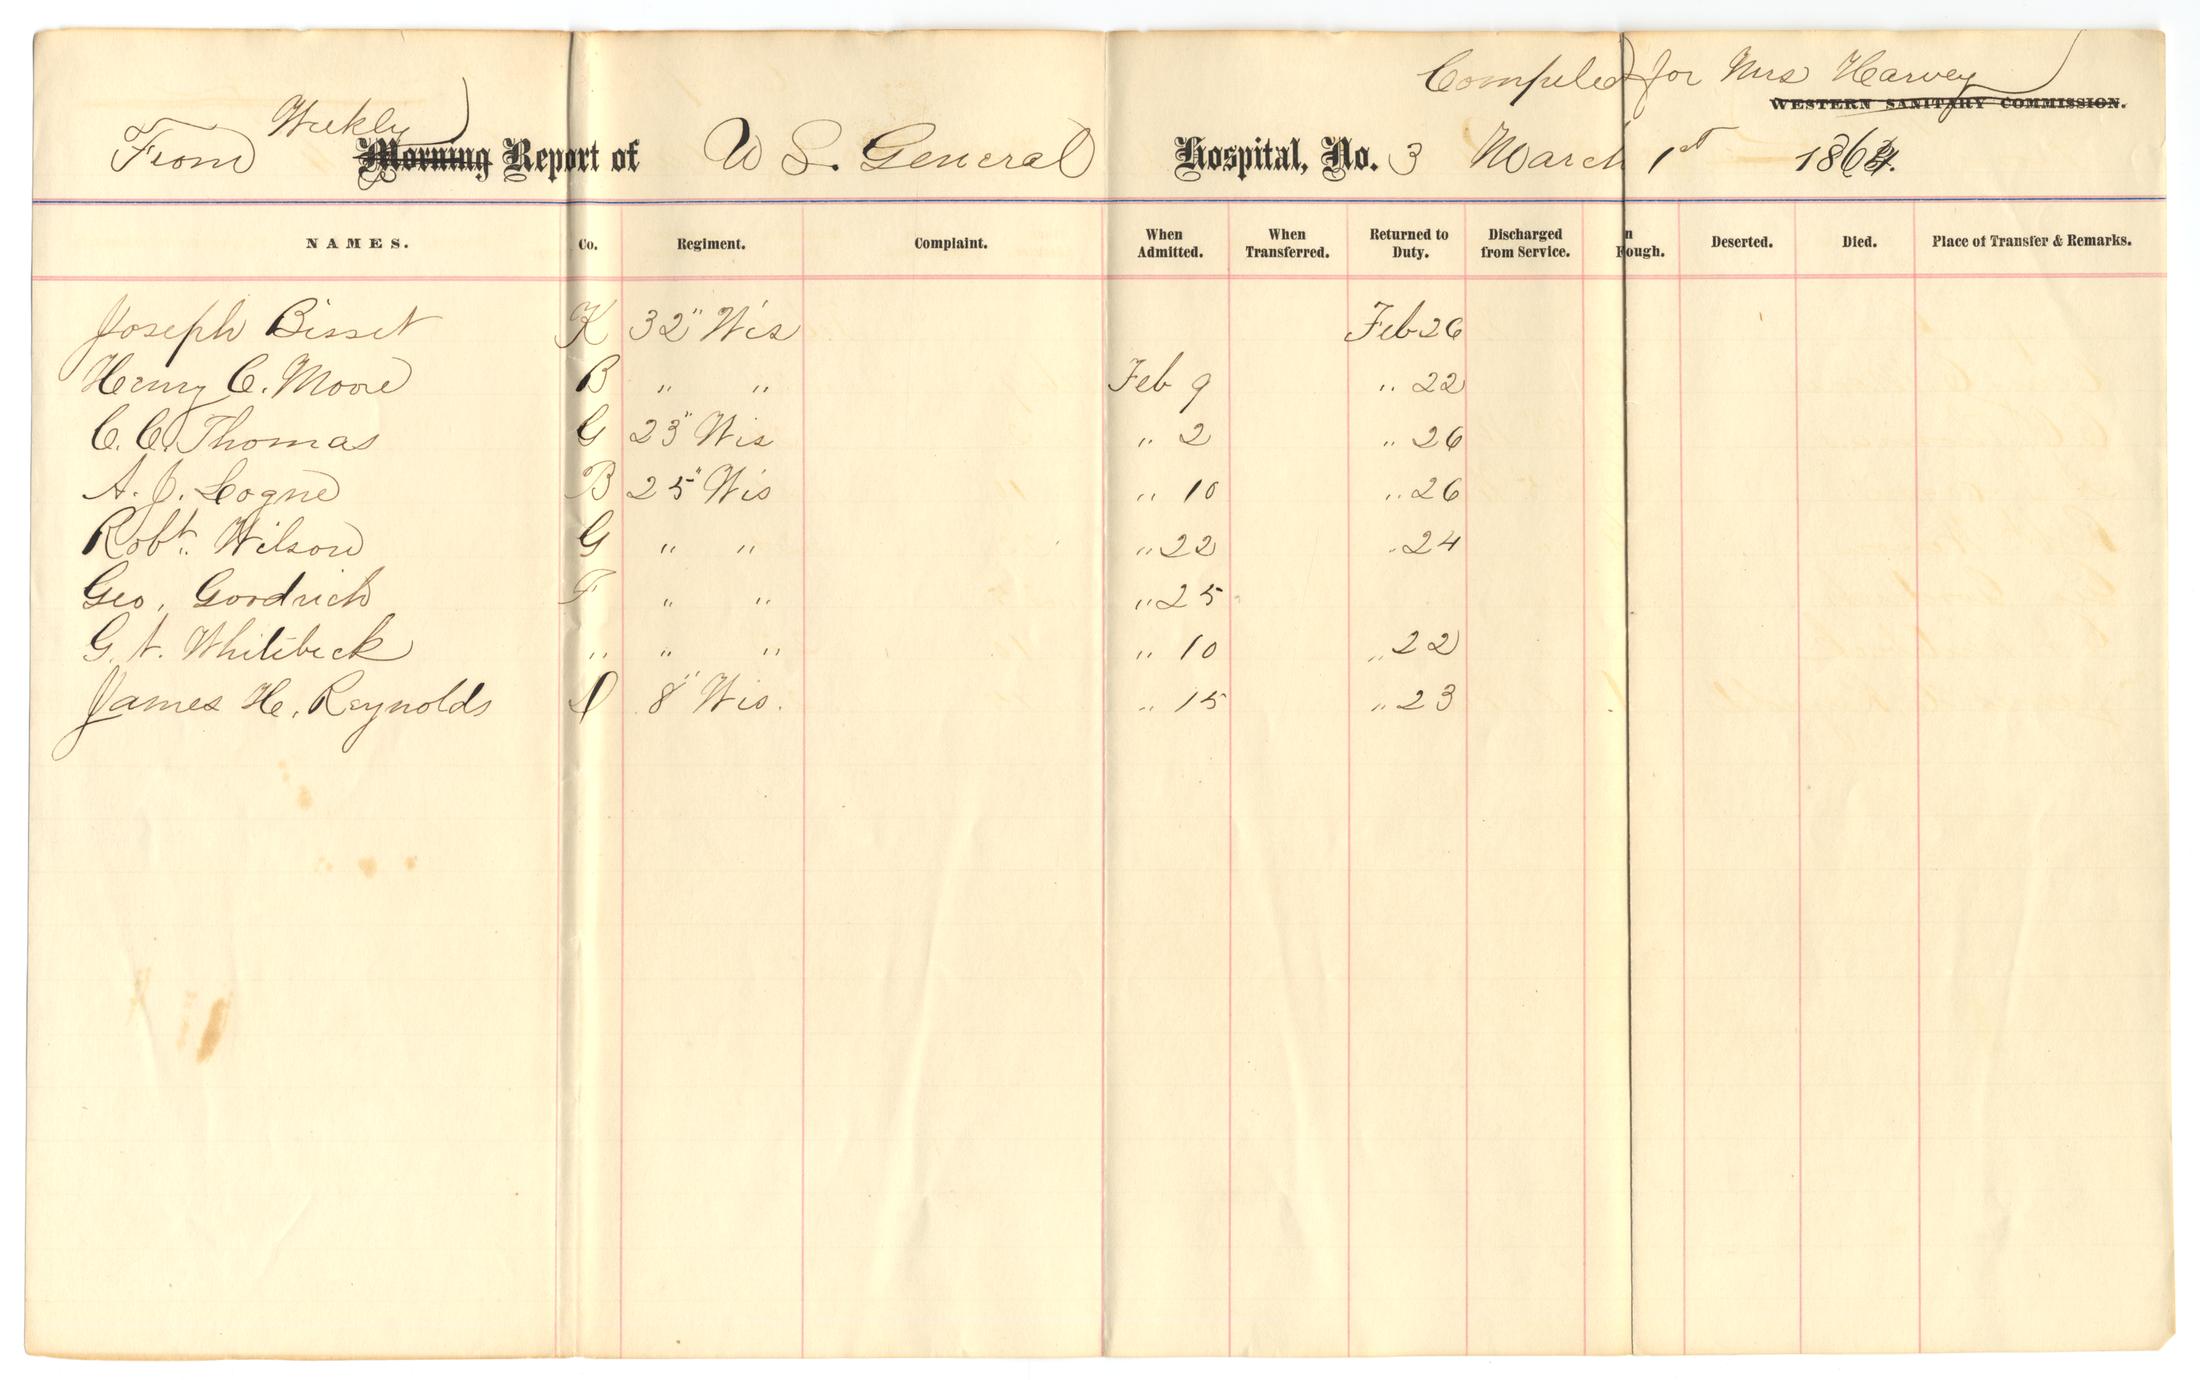 Compiled for Mrs Harvey
WESTERN SANITARY COMMISSION.
Weekly
From Morning Report of U S. General Hospital, No. 3 March 1st 1864.
NAMES. Co. Regiment. Complaint. When Admitted. When Transferred. Returned to Duty. Discharged from Service. n ough. Deserted. Died. Place of Transfer & Remarks.
Joseph Bisset K 32" Wis Feb 26
Henry C. Moore B " " Feb 9 " 22
C. C. Thomas G 23" Wis " 2 " 26
A. J. Logne B 25" Wis " 10 " 26
Robt. Wilson G " " " 22 " 24
Geo. Goodrich F " " " 25
G. A. Whitebeck " " " " 10 " 22
James H. Reynolds D 8" Wis. " 15 " 23